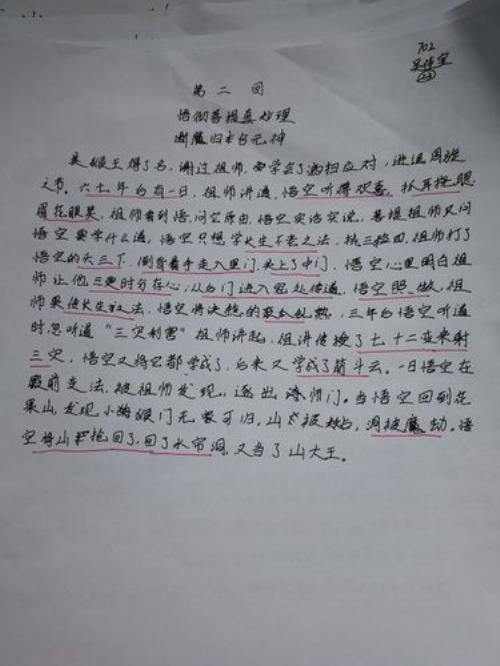 702
第二回
悟彻菩提真妙理
断魔归本合元神
美猴王得了名，谢过祖师，学会了洒扫应对，进退周旋
之节。六七年后有一日，祖师讲道，悟空听得欢喜，抓耳挠腮，
眉花眼笑，祖师看到悟，问空原由，悟空实话实说，菩提祖师又问
悟空要学什么道，悟空只想学长生不老之法，挑三拣四，祖师打了
悟空的头三下，倒背着手走入里门，关上了中门，悟空心里明白祖
师让他三更时分存心，从后门进入密处传道，悟空照做，祖
师果传长生之法，悟空将决然的，三年后悟空听道
时忽听道“三灾利害”祖师讲起，祖讲传授了七十二变来躲
三灾，悟空又将它都学成了，后来又学成了筋斗云。一日悟空在
众前变法，被祖师发现，逐出师门。当悟空回到花
果山，发现小猴们无家可归，山被占，洞被魔劫。悟
空将山抢回了，回了水帘洞，又当了山大王。